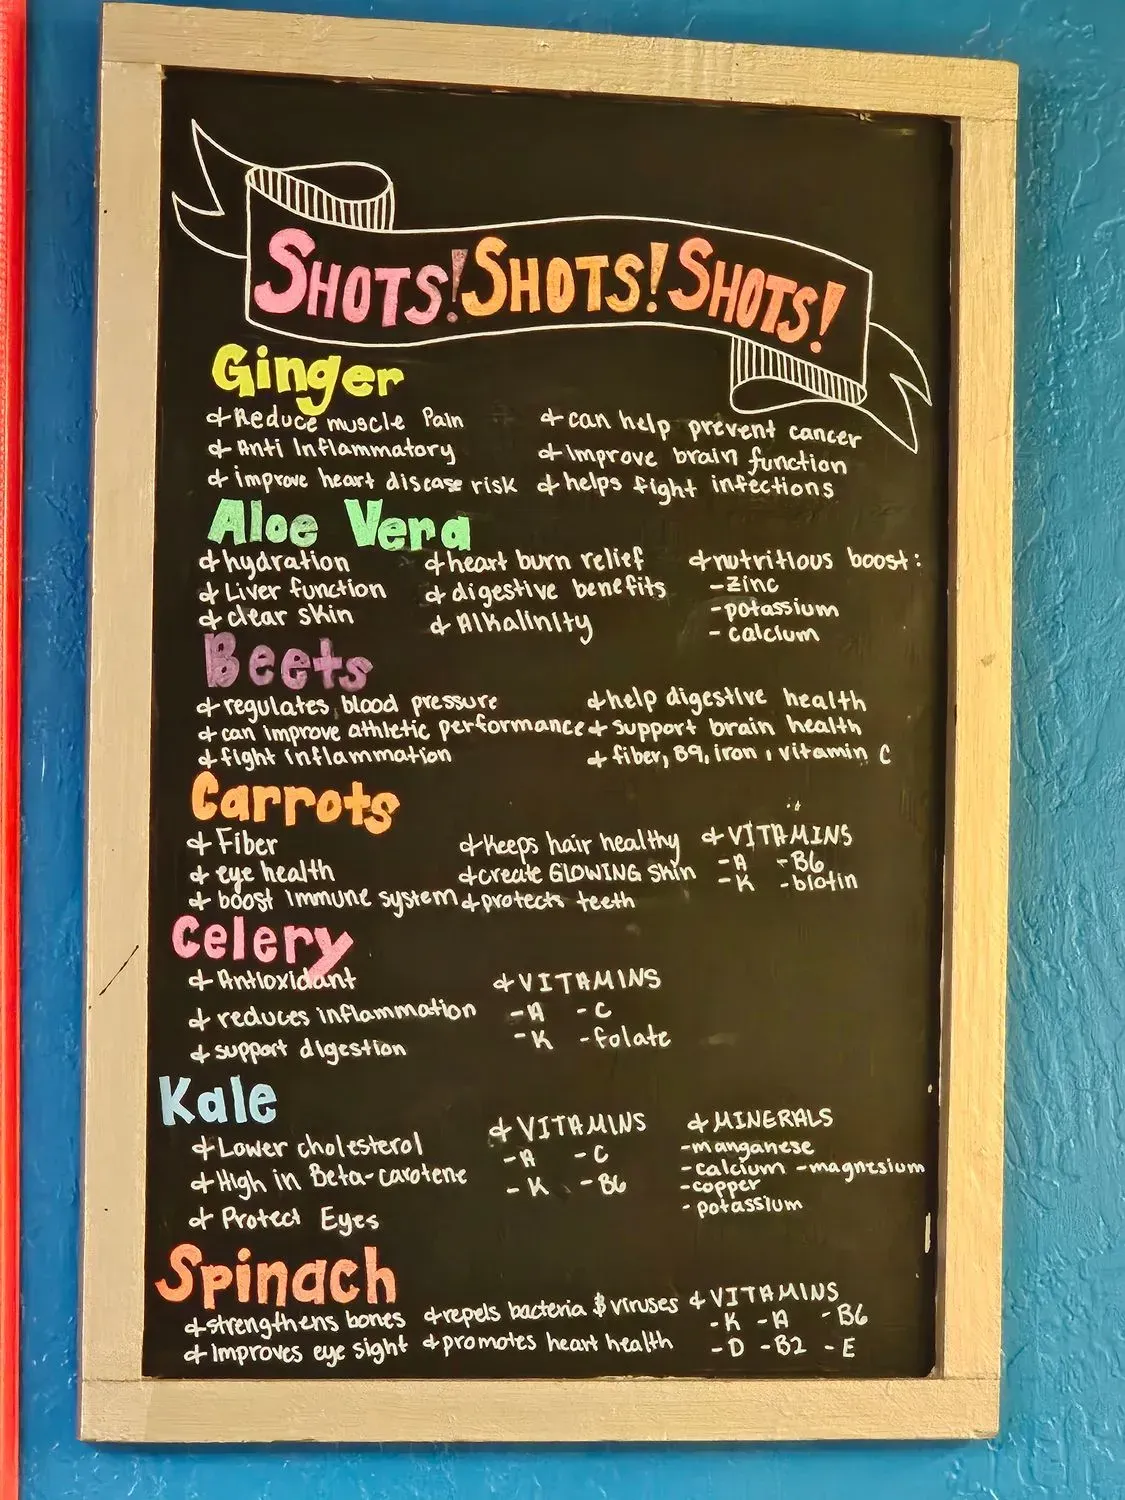 SHOTS! SHOTS! SHOTS!
Ginger
Reduce muscle Pain
Anti Inflammatory
improve heart disease risk
can help prevent cancer
Improve brain function
helps fight infections
Aloe Vera
hydration
Liver function
clear skin
heart burn relief
digestive benefits
Alkalinity
nutritious boost:
-Zinc
-potassium
- calcium
Beets
regulates blood pressure
can improve athletic performance
fight inflammation
help digestive health
support brain health
fiber, B9, iron, vitamin C
Carrots
Fiber
eye health
boost immune system
Keeps hair healthy
create GLOWING skin
protects teeth
VITAMINS
-A -B6
-K -biotin
Celery
Antioxidant
reduces inflammation
support digestion
VITAMINS
-A -C
-K -folate
Kale
Lower cholesterol
High in Beta-carotene
Protect Eyes
VITAMINS
-A -C
-K -B6
MINERALS
-manganese
-calcium -magnesium
-copper
-potassium
Spinach
strengthens bones
Improves eye sight
repels bacteria & viruses
promotes heart health
VITAMINS
-K -A -B6
-D -B2 -E